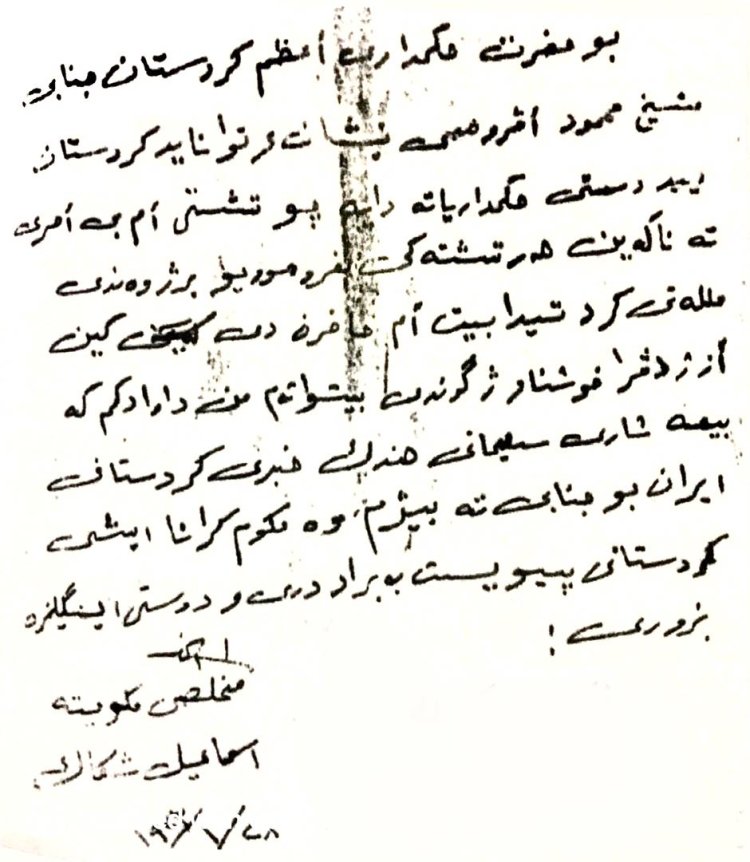 بو حضرت حکمداری أعظم کردستان جنابی
شیخ محمود أڤرو همی نیشانت و توانا ید کردستان
یید دستی حکمداریاته دایه بو تشتی أم بی أمری
ته ناکه‌ین هر تشته ک خیرو بریو برژوه‌ندی
ملله‌تی کرد تیدا بیت أم حاضرن دی کین
أز ژ ڤرا خوشناو ژ گوندی بیتواتم من دارادکم که
بیمه شاری سلیمانی هندیک خبری کردستانی
ایران بو جنابی ته بیژم، وه حکوم کرانا ایشی
کردستانی پیویست به برادری و دوستی اینگلیزه
بزوری !
امضا
مخلص حکومته
اسماعیل شکاک